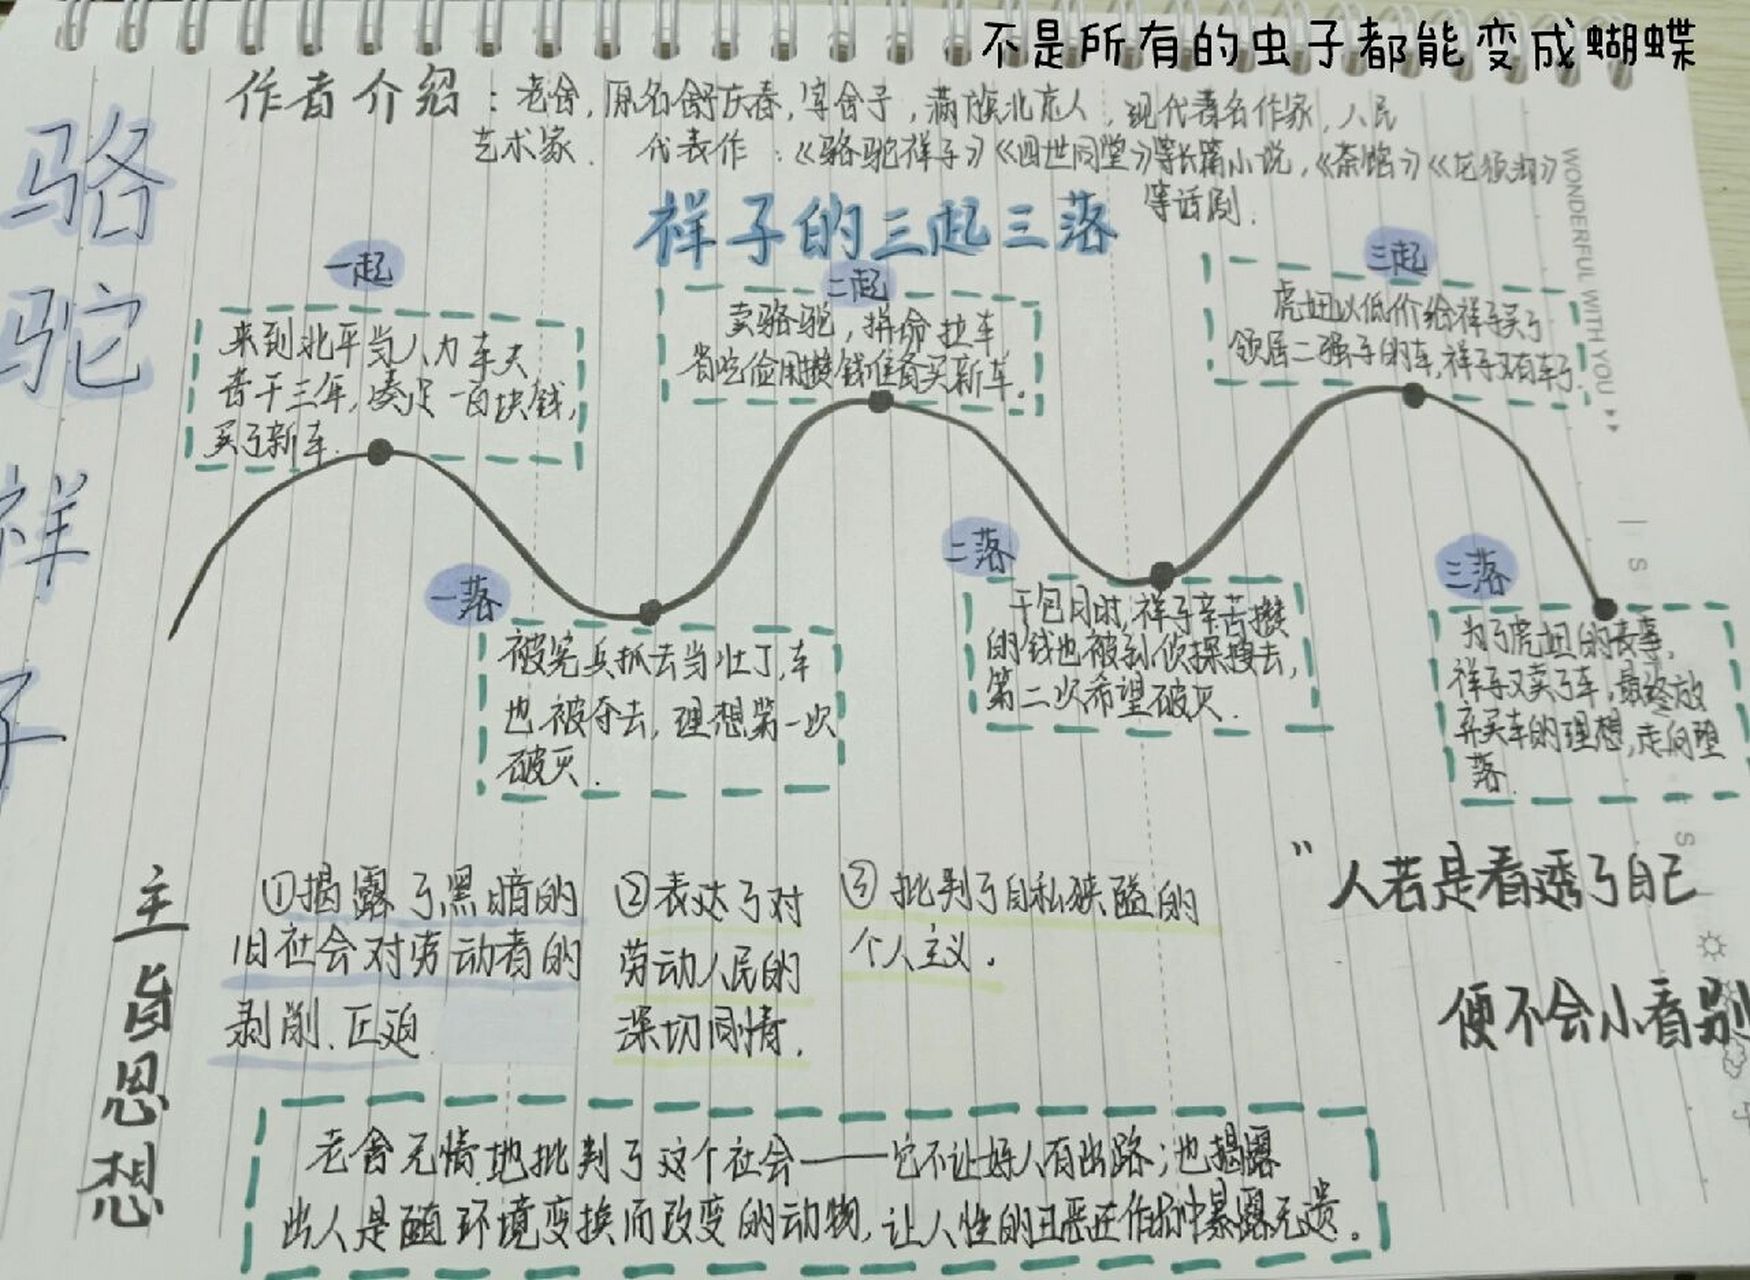 不是所有的虫子都能变成蝴蝶
作者介绍：老舍，原名舒庆春，字舍予，满族北京人，现代著名作家，人民
艺术家．代表作：《骆驼祥子》《四世同堂》等长篇小说，《茶馆》《龙须沟》
等话剧．
骆驼祥子
祥子的三起三落
一起
来到北平当人力车夫
苦干三年，凑足一百块钱，
买了新车．
二起
卖骆驼，拼命拉车
省吃俭用攒钱准备买新车．
三起
虎妞以低价给祥子买了
邻居二强子的车，祥子又有车了
一落
被宪兵抓去当壮丁，车
也被夺去，理想第一次
破灭．
二落
干包月时，祥子辛苦攒
的钱也被孙侦探搜去，
第二次希望破灭．
三落
为了虎妞的丧事，
祥子又卖了车，最终放
弃买车的理想，走向堕
落．
主旨思想
①揭露了黑暗的
旧社会对劳动者的
剥削．压迫．
②表达了对
劳动人民的
深切同情．
③批判了自私狭隘的
个人主义．
”人若是看透了自己
便不会小看别
老舍无情地批判了这个社会——它不让好人有出路；也揭露
出人是随环境变换而改变的动物，让人性的丑恶在作品中暴露无遗。
WONDERFUL WITH YOU